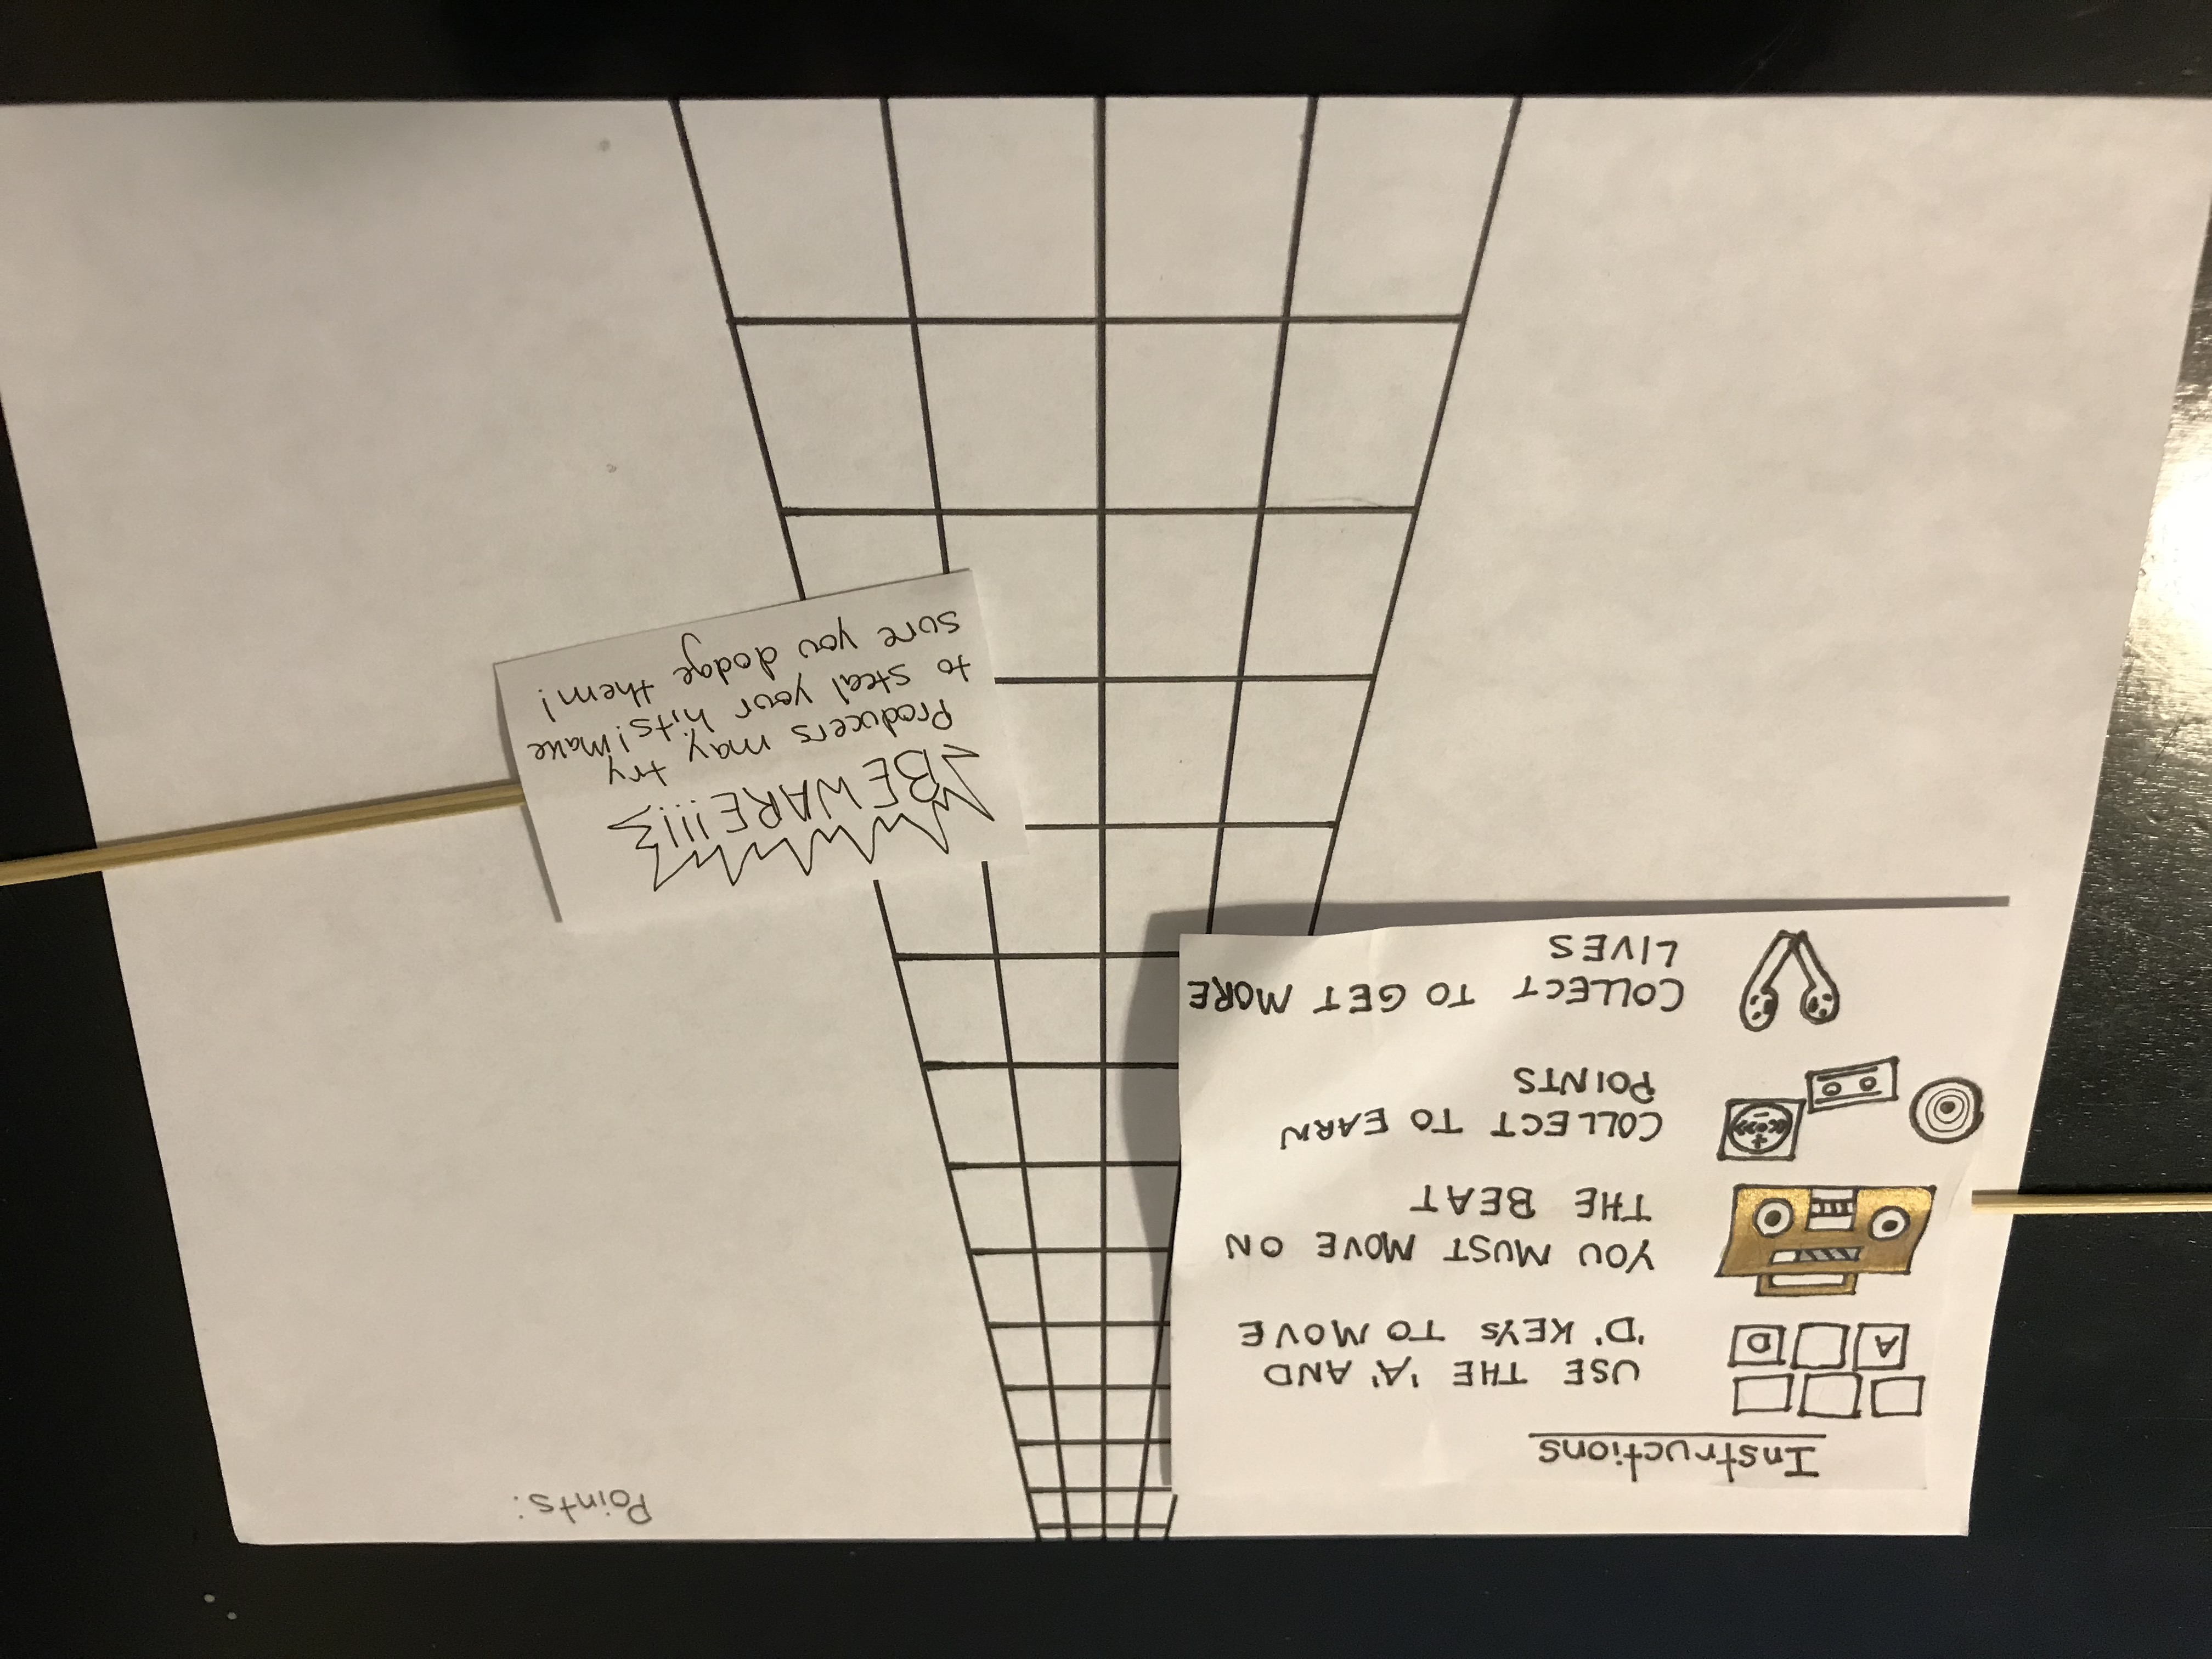 Points:
Instructions
A
D
USE THE 'A' AND
'D' KEYS TO MOVE
YOU MUST MOVE ON
THE BEAT
COLLECT TO EARN
POINTS
COLLECT TO GET MORE
LIVES
BEWARE!!!
Producers may try
to steal your hits! Make
sure you dodge them!